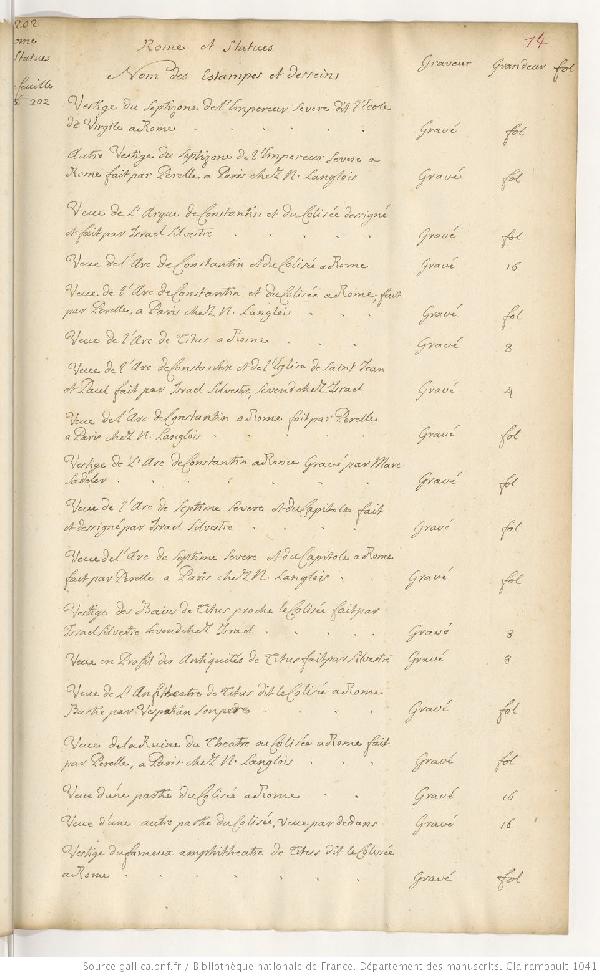 202
Rome
Statues
feuille
202
14
Rome et Statues
Graveur Grandeur fol
Nom des Estampes et desseins
Vestige du Septizone de l'Empereur Severe dit l'Ecole
de Virgile a Rome Gravé fol
Autre Vestige du Septizone de l'Empereur Severe a
Rome fait par Perelle, a Paris chez N. Langlois Gravé fol
Veue de L'Arque de Constantin et du Colisée dessigné
et fait par Israel Silvestre Gravé fol
Veue de l'Arc de Constantin et du Colisé a Rome Gravé 16
Veue de l'Arc de Constantin et du Colisée a Rome, fait
par Perelle, a Paris chez N. Langlois Gravé fol
Veue de l'Arc de Titus a Rome Gravé 8
Veue de l'Arc de Constantin et de l'Eglise de Saint Jean
et Paul fait par Israel Silvestre, se vend chez Israel Gravé 4
Veue de l'Arc de Constantin a Rome fait par Perelle
a Paris chez N. Langlois Gravé fol
Vestige de L'Arc de Constantin a Rome Gravé par Marc
Sadeler Gravé fol
Veue de l'Arc de Septime Severe et du Capitole fait
et dessigné par Israel Silvestre Gravé fol
Veue de l'Arc de Septime Severe et du Capitole a Rome
fait par Perelle a Paris chez N. Langlois Gravé fol
Vestige des Bains de Titus proche le Colisée fait par
Israel Silvestre se vend chez Israel Gravé 8
Veue en Profil des Antiquités de Titus fait par Silvestre Gravé 8
Veue de L'Anfiteatre de Titus dit le Colisé a Rome
Bastie par Vespasian Gravé fol
Veue de la Ruine du Theatre ou Colisée a Rome fait
par Perelle, a Paris chez N. Langlois Gravé fol
Veue d'une partie du Colisée a Rome Gravé 16
Veue d'une autre partie du Colisée, Veue par dedans Gravé 16
Vestige du fameux amphitheatre de Titus dit le Colisée
a Rome Gravé fol
Source gallica.bnf.fr / Bibliothèque nationale de France. Département des manuscrits. Clairambault 1041